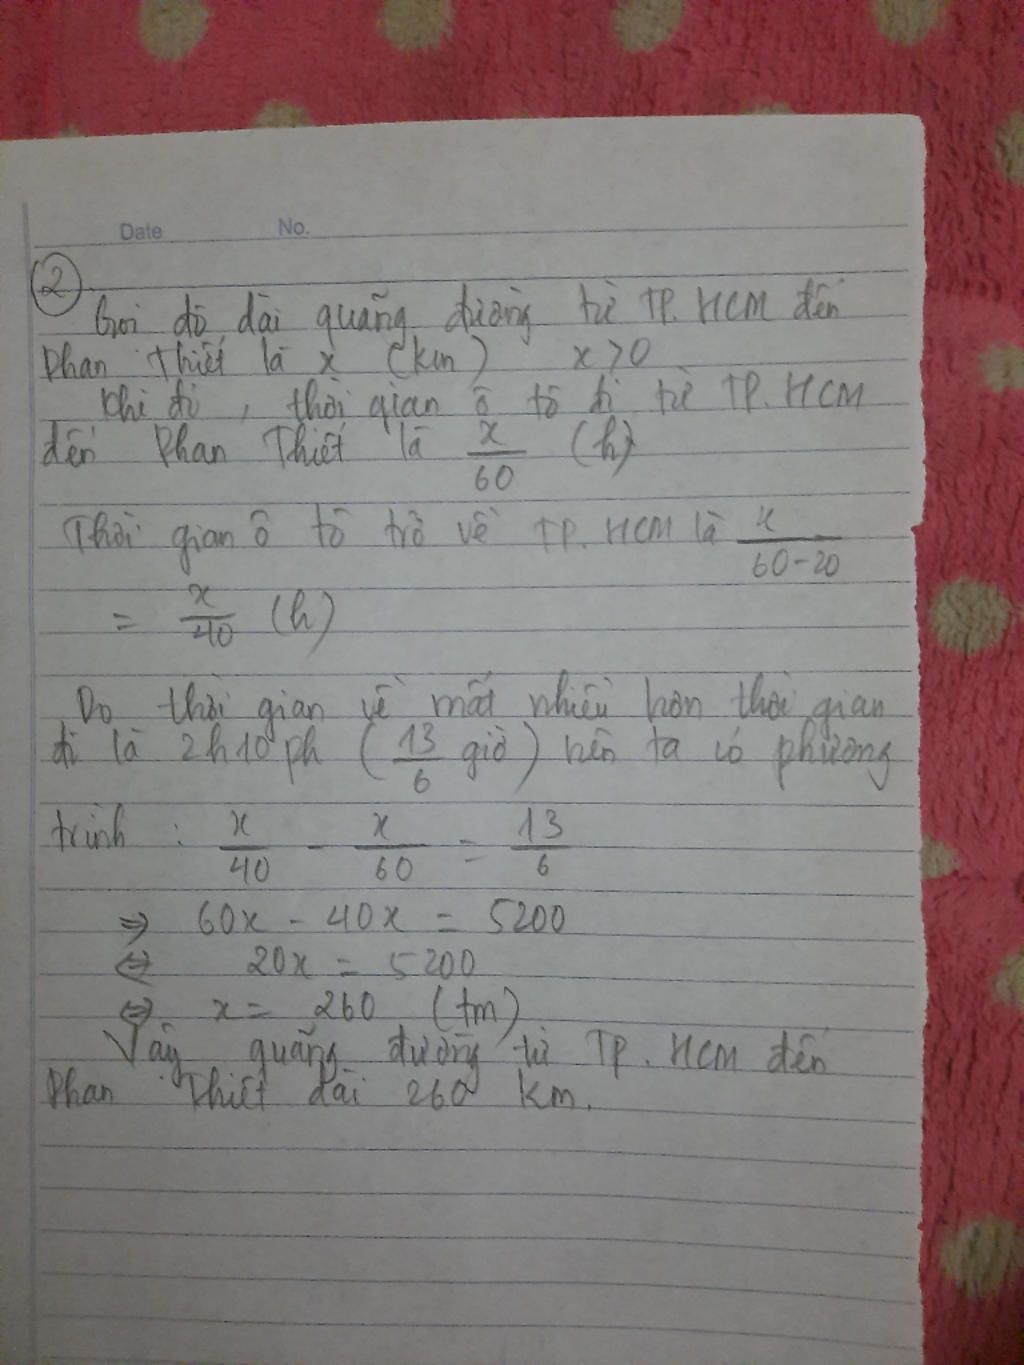 Date No.
②
Gọi độ dài quãng đường từ TP. HCM đến
Phan Thiết là x (km) x > 0
Khi đi, thời gian ô tô đi từ TP. HCM
đến Phan Thiết là x/60 (h)
Thời gian ô tô trở về TP. HCM là x/(60-20)
= x/40 (h)
Do thời gian về mất nhiều hơn thời gian
đi là 2h10ph (13/6 giờ) nên ta có phương
trình : x/40 - x/60 = 13/6
⇒ 60x - 40x = 5200
⇔ 20x = 5200
⇔ x = 260 (tm)
Vậy quãng đường từ TP. HCM đến
Phan Thiết dài 260 km.